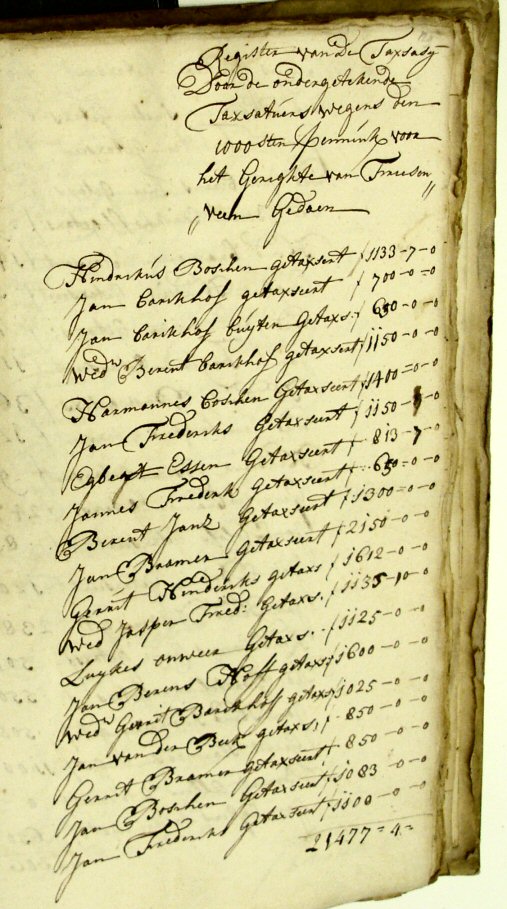 Register van de Taxsasy
Door de ondergetekende
Taxsatuers wegens den
1000sten pennink voor
het Gerighte van Vriesen
"veen Gedaen "
Hindrickus Boschen getaxseert f 1133-7-0
Jan Barckhof getaxseert f 700-0-0
Jan Barckhof buyten Getaxs. f 650-0-0
Wedw Berent Barckhof getaxsert f 1150-0-0
Harmannes Boschen Getaxseert f 1400-0-0
Jan Frederiks Getaxseert f 1150- -0
Egbert Essen Getaxseert f 813-7-0
Jannes Frederik Getaxseert f 650-0-0
Berent Janz Getaxseert f 1300-0-0
Jan Bramer Getaxseert f 2150-0-0
Gerrit Hinderiks getaxs f 1612-0-0
Wed Jasper Fred: Getaxs. f 1135-10-0
Luykes onweer Getaxs. f 1125-0-0
Jan Berens Hoff getaxs f 1600-0-0
Wedw Gerrit Barckhof getaxs f 1025-0-0
Jan van der Beek getaxs, f 850-0-0
Gerrit Bramer getaxseert f 850-0-0
Jan Boschen Getaxseert f 1083-0-0
Jan Frederiks Getaxseert f 1100-0-0
21477=4=